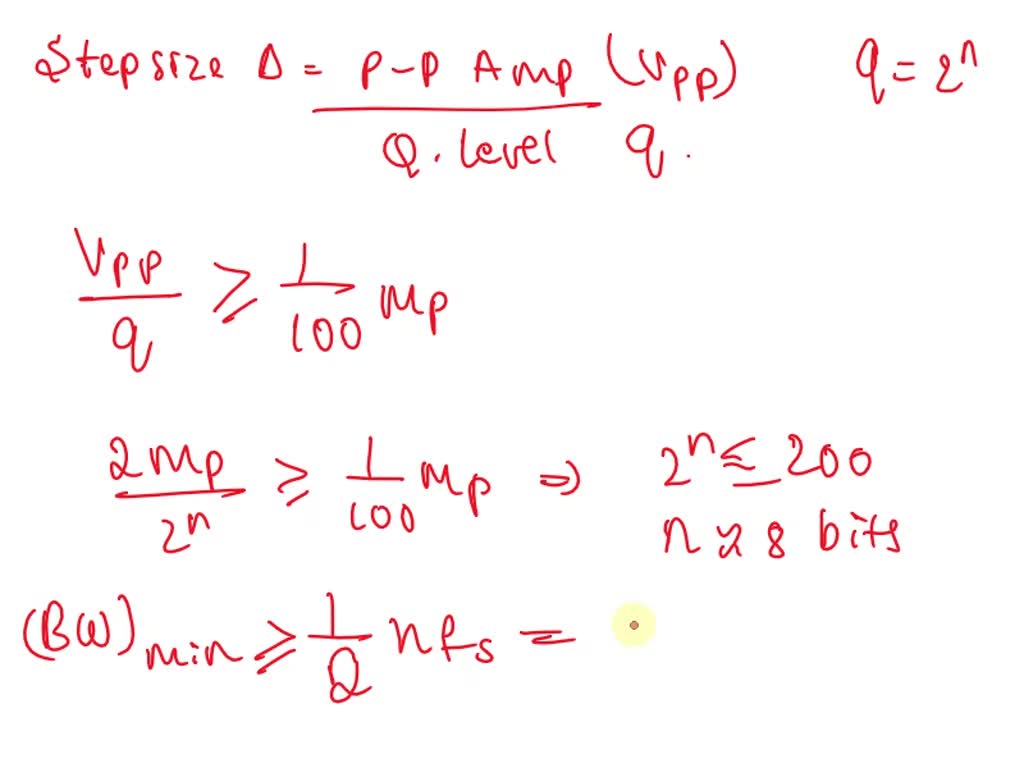 Stepsize Δ = P-P Amp (Vpp) / Q. level q. q = 2^n
Vpp / q ≥ 1/100 mp
2mp / 2^n ≥ 1/100 mp ⇒ 2^n ≤ 200
n ≈ 8 bits
(BW)min ≥ 1/2 nfs =